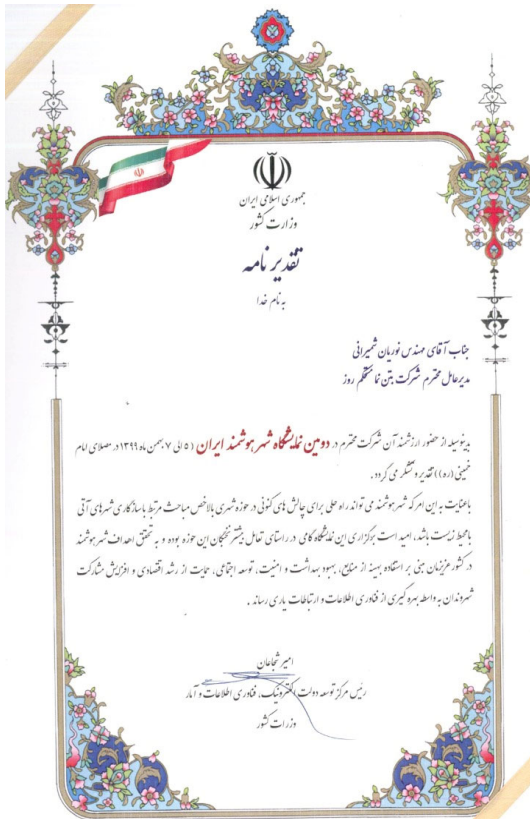 جمهوری اسلامی ایران
وزارت کشور
تقدیر نامه
به نام خدا
جناب آقای مهندس نوریان شمیرانی
مدیرعامل محترم شرکت بتن نما مستحکم روز
بدینوسیله از حضور ارزشمند آن شرکت محترم در دومین نمایشگاه شهر هوشمند ایران (۵ الی ۷ بهمن ماه ۱۳۹۹ در مصلای امام
خمینی (ره)) تقدیر و تشکر می گردد.
باعنایت به این امر که شهر هوشمند می تواند راه حلی برای چالش های کنونی در حوزه شهری بالاخص مباحث مرتبط باسازگاری شهرهای آتی
بامحیط زیست باشد، امید است برگزاری این نمایشگاه گامی در راستای تعامل بیشتر نخبگان این حوزه بوده و به تحقق اهداف شهر هوشمند
در کشور عزیزمان مبنی بر استفاده بهینه از منابع، بهبود بهداشت و امنیت، توسعه اجتماعی، حمایت از رشد اقتصادی و افزایش مشارکت
شهروندان به واسطه بهره گیری از فناوری اطلاعات و ارتباطات یاری رساند.
امیر شجاعان
رئیس مرکز توسعه دولت الکترونیک، فناوری اطلاعات و آمار
وزرات کشور